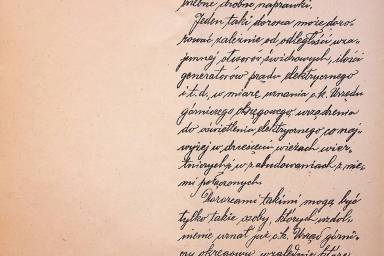 drobne naprawki.
Jeden taki dozorca może dozo-
rować, zależnie od odległości wza-
jemnej otworów świdrowych, ilości
generatorów prądu elektrycznego
i t.d., w miarę uznania c.k. Urzędu
górniczego okręgowego, urządzenia
do oświetlenia elektrycznego, co naj-
wyżej w dziesięciu wieżach wiert-
niczych i w zabudowaniach z nie-
mi połączonych.
Dozorcami takimi mogą być
tylko takie osoby, których uzdol-
nienie uznał już c.k. Urząd górni-
czy okręgowy, względnie które